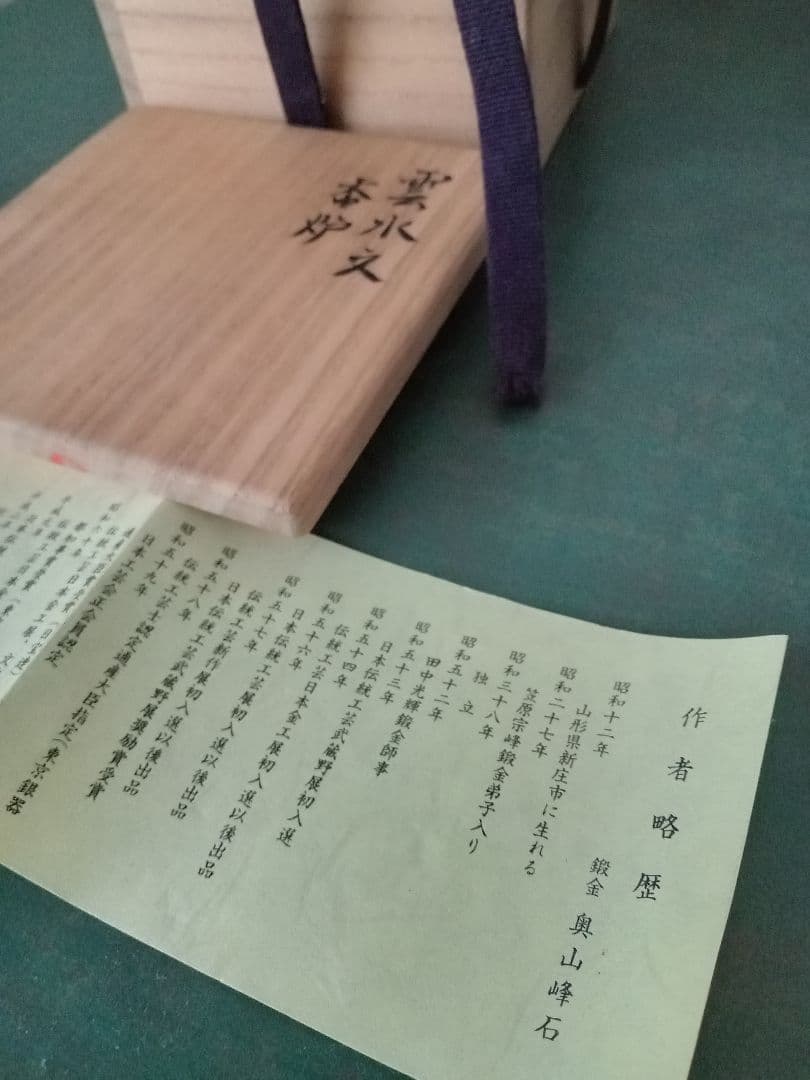 雲水文
香炉
作者略歴
鍛金 奥山峰石
昭和十二年
山形県新庄市に生れる
昭和二十七年
笠原宗峰鍛金弟子入り
昭和三十八年
独立
昭和五十二年
田中光輝鍛金師事
昭和五十三年
日本伝統工芸武蔵野展初入選
昭和五十四年
伝統工芸日本金工展初入選
昭和五十六年
日本伝統工芸展初入選以後出品
昭和五十七年
伝統工芸新作展初入選以後出品
昭和五十八年
伝統工芸武蔵野展奨励賞受賞
昭和五十九年
日本工芸士認定通産大臣指定(東京銀器
日本工芸会正会員認定